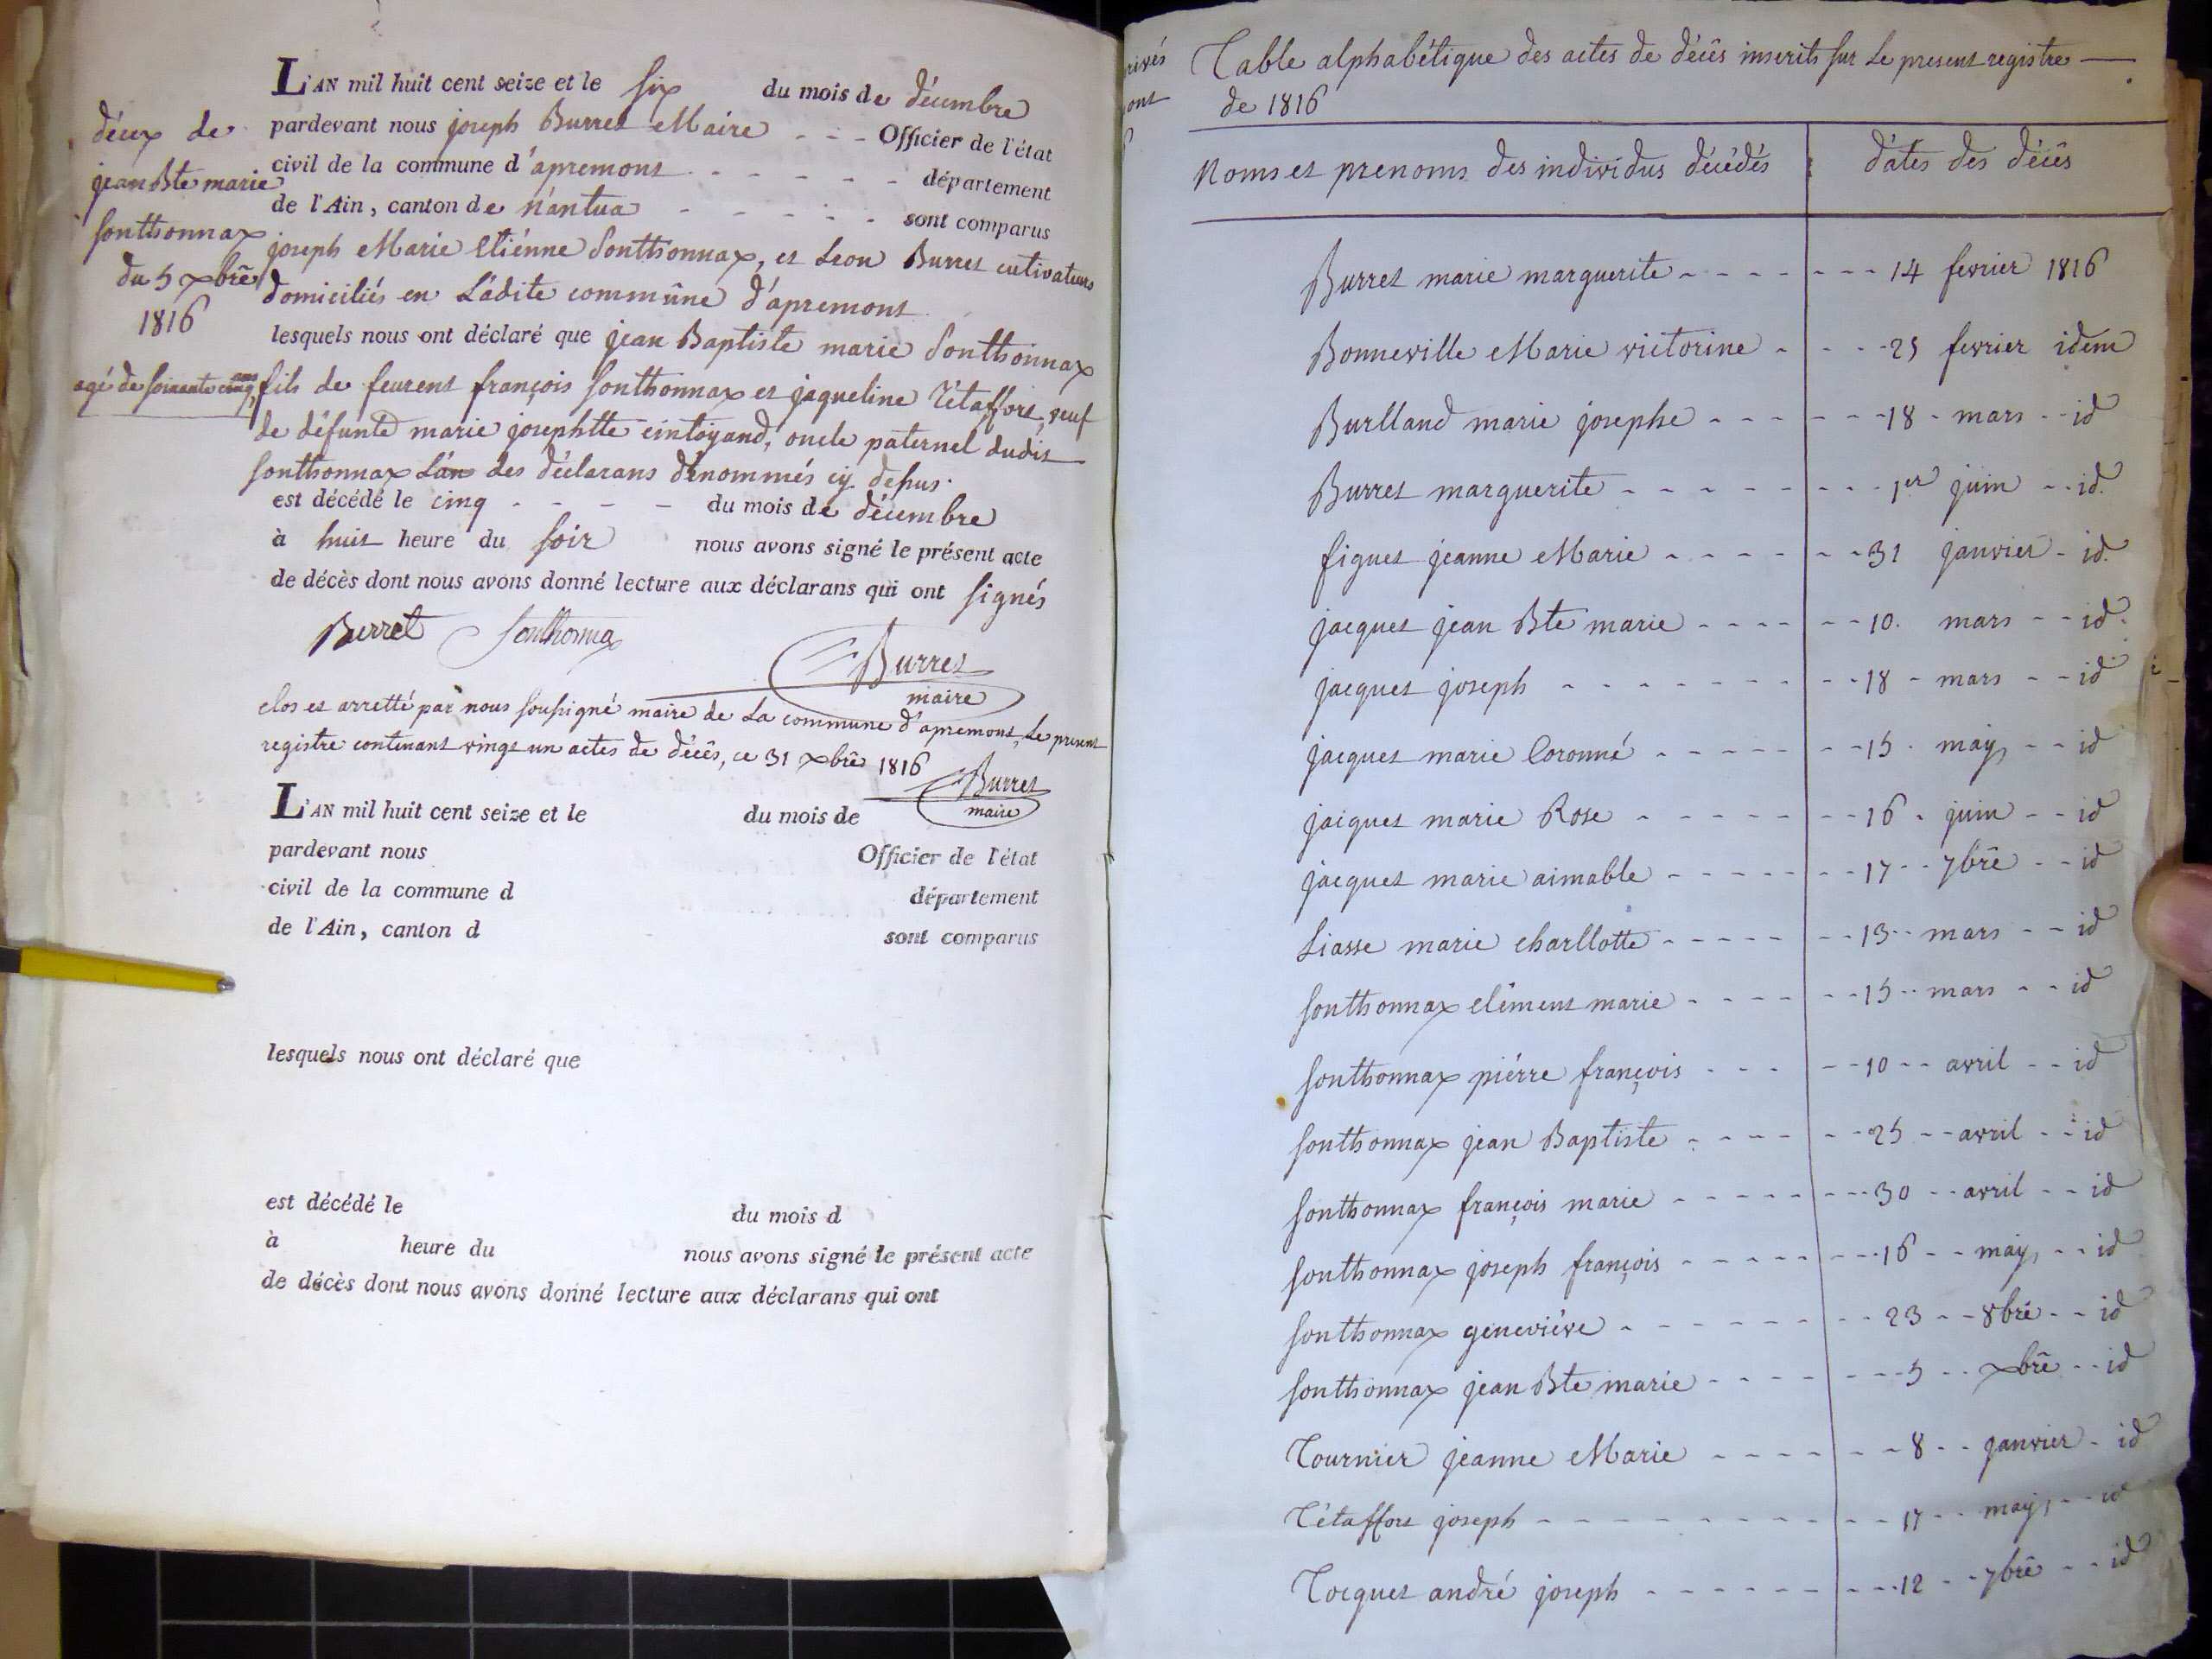 L'AN mil huit cent seize et le six du mois de décembre
pardevant nous joseph Burret Maire - - - Officier de l'état
civil de la commune d'apremont - - - - - - département
de l'Ain, canton de nantua - - - - - sont comparus
joseph Marie Etiénne Sonthonnax, et Leon Burret cutivateurs
domiciliés en Ladite commune d'apremont
lesquels nous ont déclaré que jean Baptiste marie Sonthonnax
fils de feurent françois Sonthonnax et jaqueline Tétaffort, veuf
de défunte marie josephtte cintoyand, oncle paternel dudit
Sonthonnax L'un des déclarans dénommés cy depus.
est décédé le cinq - - - - du mois de décembre
à huit heure du soir nous avons signé le présent acte
de décès dont nous avons donné lecture aux déclarans qui ont signés
décex de
jean Bte marie
Sonthonnax
du 5 xbre
1816
agé de soixante cinq ans
Burret Sonthonnax
Burret
maire
clos et arretté par nous soussigné maire de La commune d'apremont, Le present
registre contenant vingt un actes de décès, ce 31 xbre 1816
Burret
maire
L'AN mil huit cent seize et le du mois de
pardevant nous Officier de l'état
civil de la commune d département
de l'Ain, canton d sont comparus
lesquels nous ont déclaré que
est décédé le du mois d
à heure du nous avons signé le présent acte
de décès dont nous avons donné lecture aux déclarans qui ont
Table alphabétique des actes de décès inscrits sur Le present registre
de 1816
Noms et prenoms des individus décédés dates des décès
Burret marie marguerite - - - - - - - 14 fevrier 1816
Bonneville Marie victorine - - - - 25 fevrier idem
Burlland marie josephe - - - - - - 18 - mars - - id
Burret marguerite - - - - - - - - 1er juin - - id.
figuet jeanne Marie - - - - - - - 31 janvier - id.
jacquet jean Bte marie - - - - - - 10. mars - - id.
jacquet joseph - - - - - - - - - 18 - mars - - id
jacquet marie Coronné - - - - - - - 15. may, - - id
jaiquet marie Rose - - - - - - - 16. juin - - id
jacquet marie aimable - - - - - - - 17 - - 7bre - - id
Liasse marie charllotte - - - - - - - 13 - - mars - - id
Sonthonnax clément marie - - - - - - 15 - - mars - - id
Sonthonnax piérre françois - - - - - 10 - - avril - - id
Sonthonnax jean Baptiste - - - - - - 25 - - avril - - id
Sonthonnax françois marie - - - - - - - - 30 - - avril - - id
Sonthonnax joseph françois - - - - - - - - 16 - - may, - - id
Sonthonnax geneviève - - - - - - - - - 23 - - 8bre - - id
Sonthonnax jean Bte marie - - - - - - - - 5 - - xbre - - id
Tournier jeanne Marie - - - - - - - 8 - - janvier - id
Tétaffort joseph - - - - - - - - - - - 17 - - may, - - id
Tocquet andré joseph - - - - - - - - - - 12 - - 7bre - - id